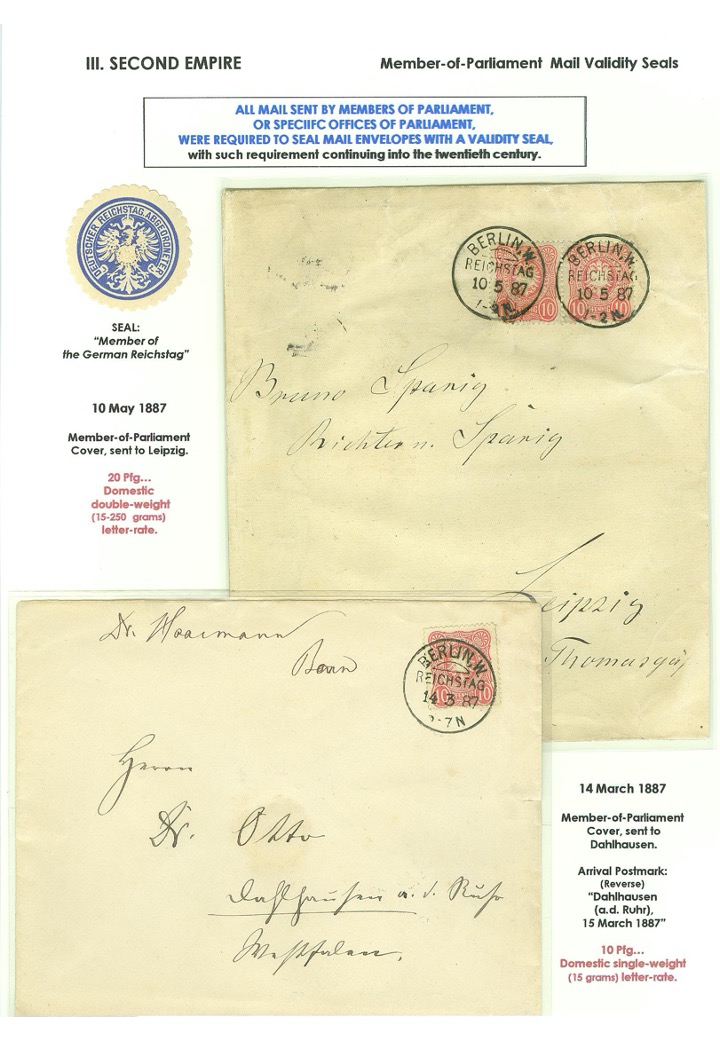 III. SECOND EMPIRE
Member-of-Parliament Mail Validity Seals
ALL MAIL SENT BY MEMBERS OF PARLIAMENT,
OR SPECIIFC OFFICES OF PARLIAMENT,
WERE REQUIRED TO SEAL MAIL ENVELOPES WITH A VALIDITY SEAL,
with such requirement continuing into the twentieth century.
DEUTSCHER REICHSTAG. ABGEORDNETER
SEAL:
"Member of
the German Reichstag"
10 May 1887
Member-of-Parliament
Cover, sent to Leipzig.
20 Pfg...
Domestic
double-weight
(15-250 grams)
letter-rate.
BERLIN.W.
REICHSTAG
10 5 87
10
BERLIN.W.
REICHSTAG
10 5 87
-2N
10 10
Bruno Sparig
Richter n. Sparig
Leipzig
Dr. Haarmann
Bonn
BERLIN.W.
REICHSTAG
14 3 87
-7N
10
Herrn
Dr. Otto
Dahlhausen a. d. Ruhr
Westfalen.
14 March 1887
Member-of-Parliament
Cover, sent to
Dahlhausen.
Arrival Postmark:
(Reverse)
"Dahlhausen
(a.d. Ruhr),
15 March 1887"
10 Pfg...
Domestic single-weight
(15 grams) letter-rate.